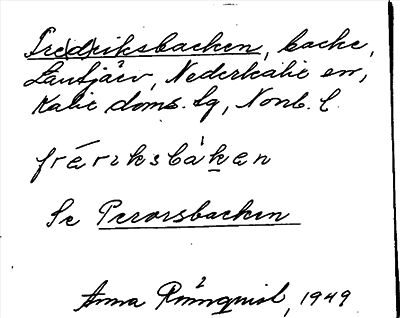 Fre(d)riksbacken, backe,
Lansjärv, Nederkalix sn,
Kalix doms. lg, Norrb. l.
fré̄rıksbàken
Se Perorsbacken
Anna Rönnqvist, 1949